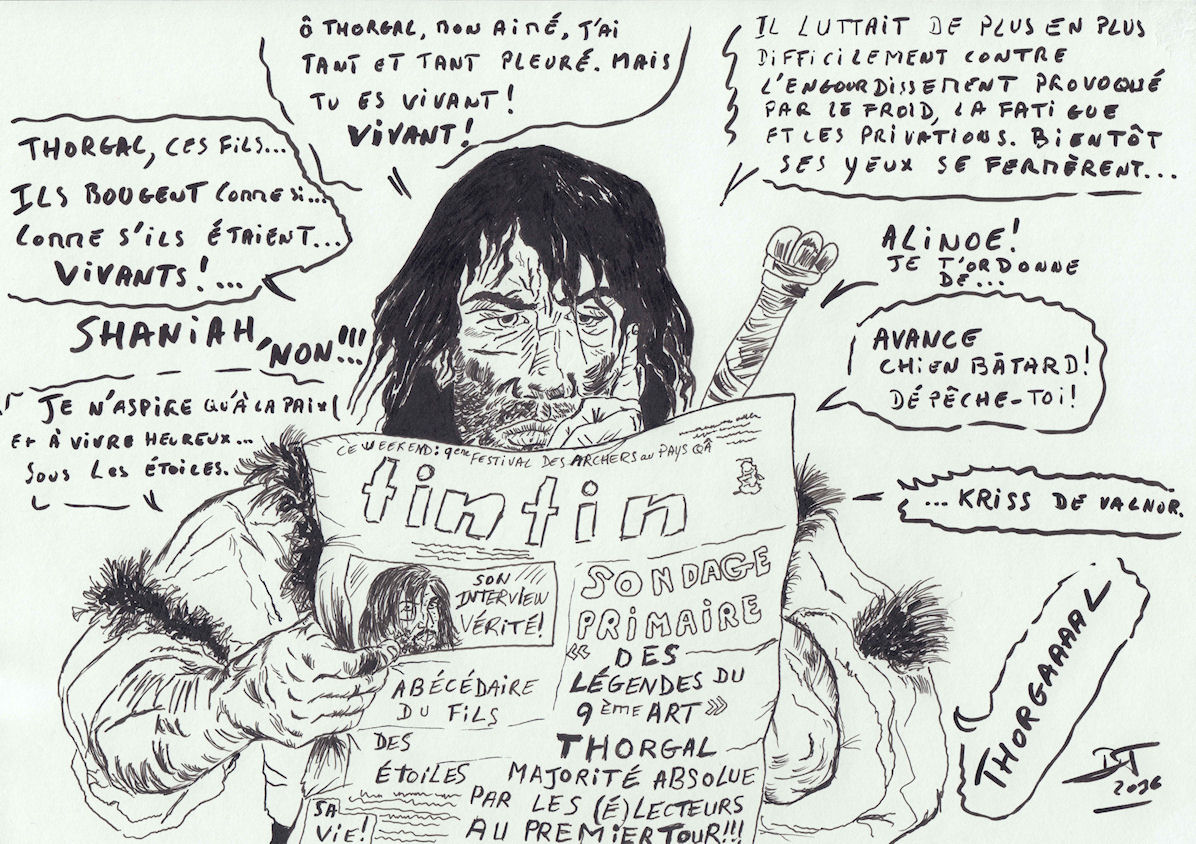 Ô THORGAL, MON AIMÉ, J'AI
TANT ET TANT PLEURÉ. MAIS
TU ES VIVANT!
VIVANT!
IL LUTTAIT DE PLUS EN PLUS
DIFFICILEMENT CONTRE
L'ENGOURDISSEMENT PROVOQUÉ
PAR LE FROID, LA FATIGUE
ET LES PRIVATIONS. BIENTÔT
SES YEUX SE FERMÈRENT...
THORGAL, CES FILS...
ILS BOUGENT COMME SI...
COMME S'ILS ÉTAIENT...
VIVANTS!...
SHANIAH,
NON!!!
JE N'ASPIRE QU'À LA PAIX
ET À VIVRE HEUREUX...
SOUS LES ÉTOILES.
ALINOE!
JE T'ORDONNE
DE...
AVANCE
CHIEN BÂTARD!
DÉPÊCHE-TOI!
... KRISS DE VALNOR.
THORGAAAAL
CE WEEKEND: 9ème FESTIVAL DES ARCHERS au PAYS QÂ
tintin
SON
INTERVIEW
VÉRITÉ!
ABÉCÉDAIRE
DU FILS
DES
ÉTOILES
SA
VIE!
SONDAGE
PRIMAIRE
« DES
LÉGENDES DU
9ÈME ART »
THORGAL
MAJORITÉ ABSOLUE
PAR LES (É)LECTEURS
AU PREMIER TOUR!!!
2016